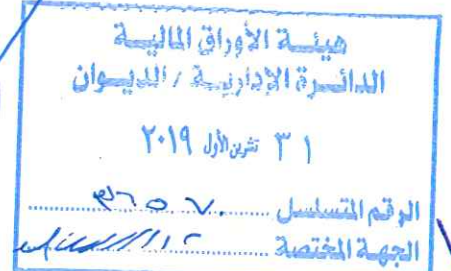 هيئة الأوراق المالية
الدائرة الإدارية / الديوان
٣١ تشرين الأول ٢٠١٩
الرقم المتسلسل
الجهة المختصة